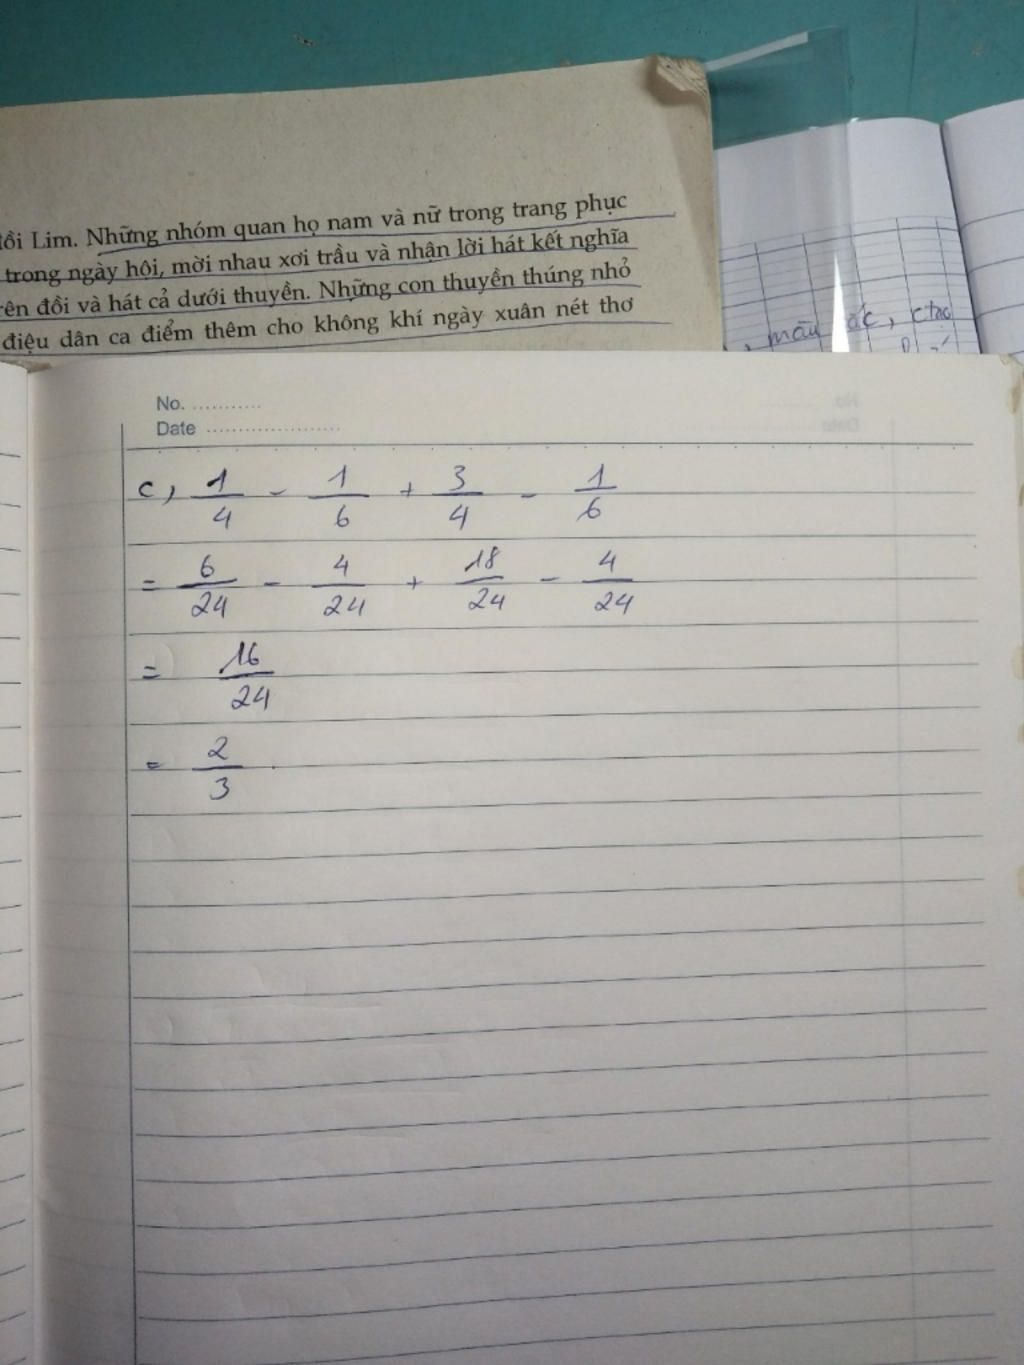 đồi Lim. Những nhóm quan họ nam và nữ trong trang phục
trong ngày hội, mời nhau xơi trầu và nhận lời hát kết nghĩa
trên đồi và hát cả dưới thuyền. Những con thuyền thúng nhỏ
điệu dân ca điểm thêm cho không khí ngày xuân nét thơ
, màu
No. ...........
Date .....................
c, 1/4 - 1/6 + 3/4 - 1/6
= 6/24 - 4/24 + 18/24 - 4/24
= 16/24
= 2/3